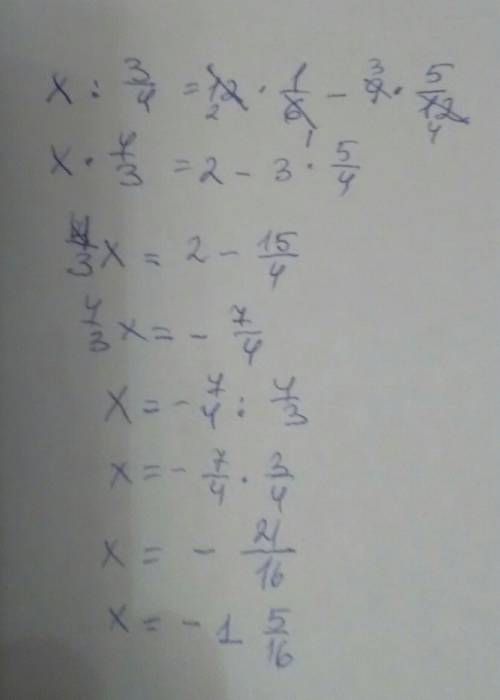 x : 3/4 = 12 · 1/6 − 9 · 5/12
x · 4/3 = 2 − 3 · 5/4
4/3 x = 2 − 15/4
4/3 x = − 7/4
x = − 7/4 : 4/3
x = − 7/4 · 3/4
x = − 21/16
x = − 1 5/16